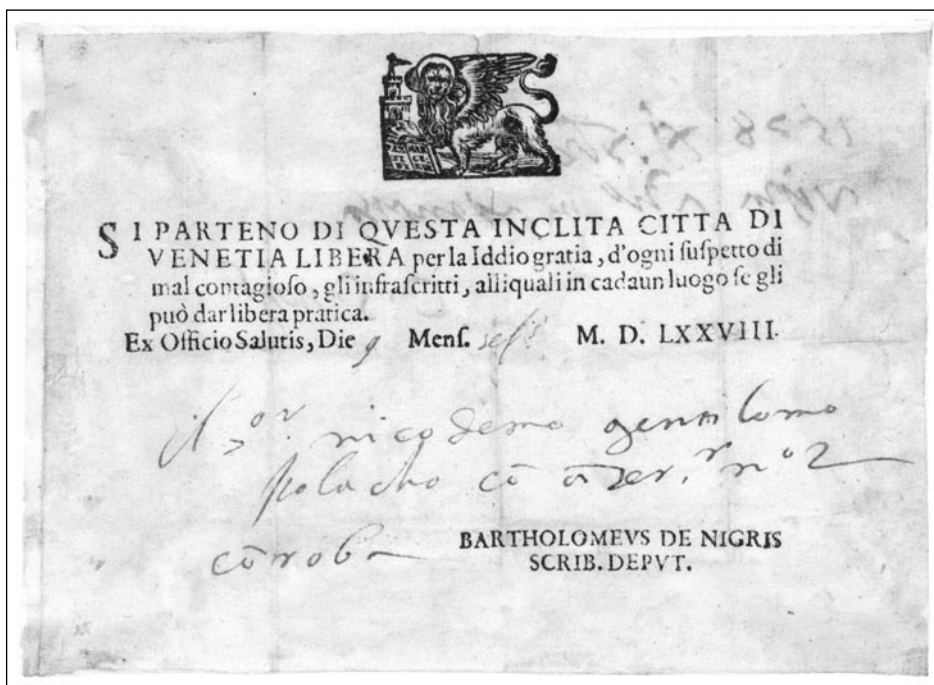 SI PARTENO DI QVESTA INCLITA CITTA DI
VENETIA LIBERA per la Iddio gratia, d'ogni ſuſpetto di
mal contagioſo, gli infraſcritti, alli quali in cadaun luogo ſe gli
può dar libera pratica.
Ex Officio Salutis, Die 9 Menſ. M. D. LXXVIII.
nicodemo
polacho
cō roba
BARTHOLOMEVS DE NIGRIS
SCRIB. DEPVT.